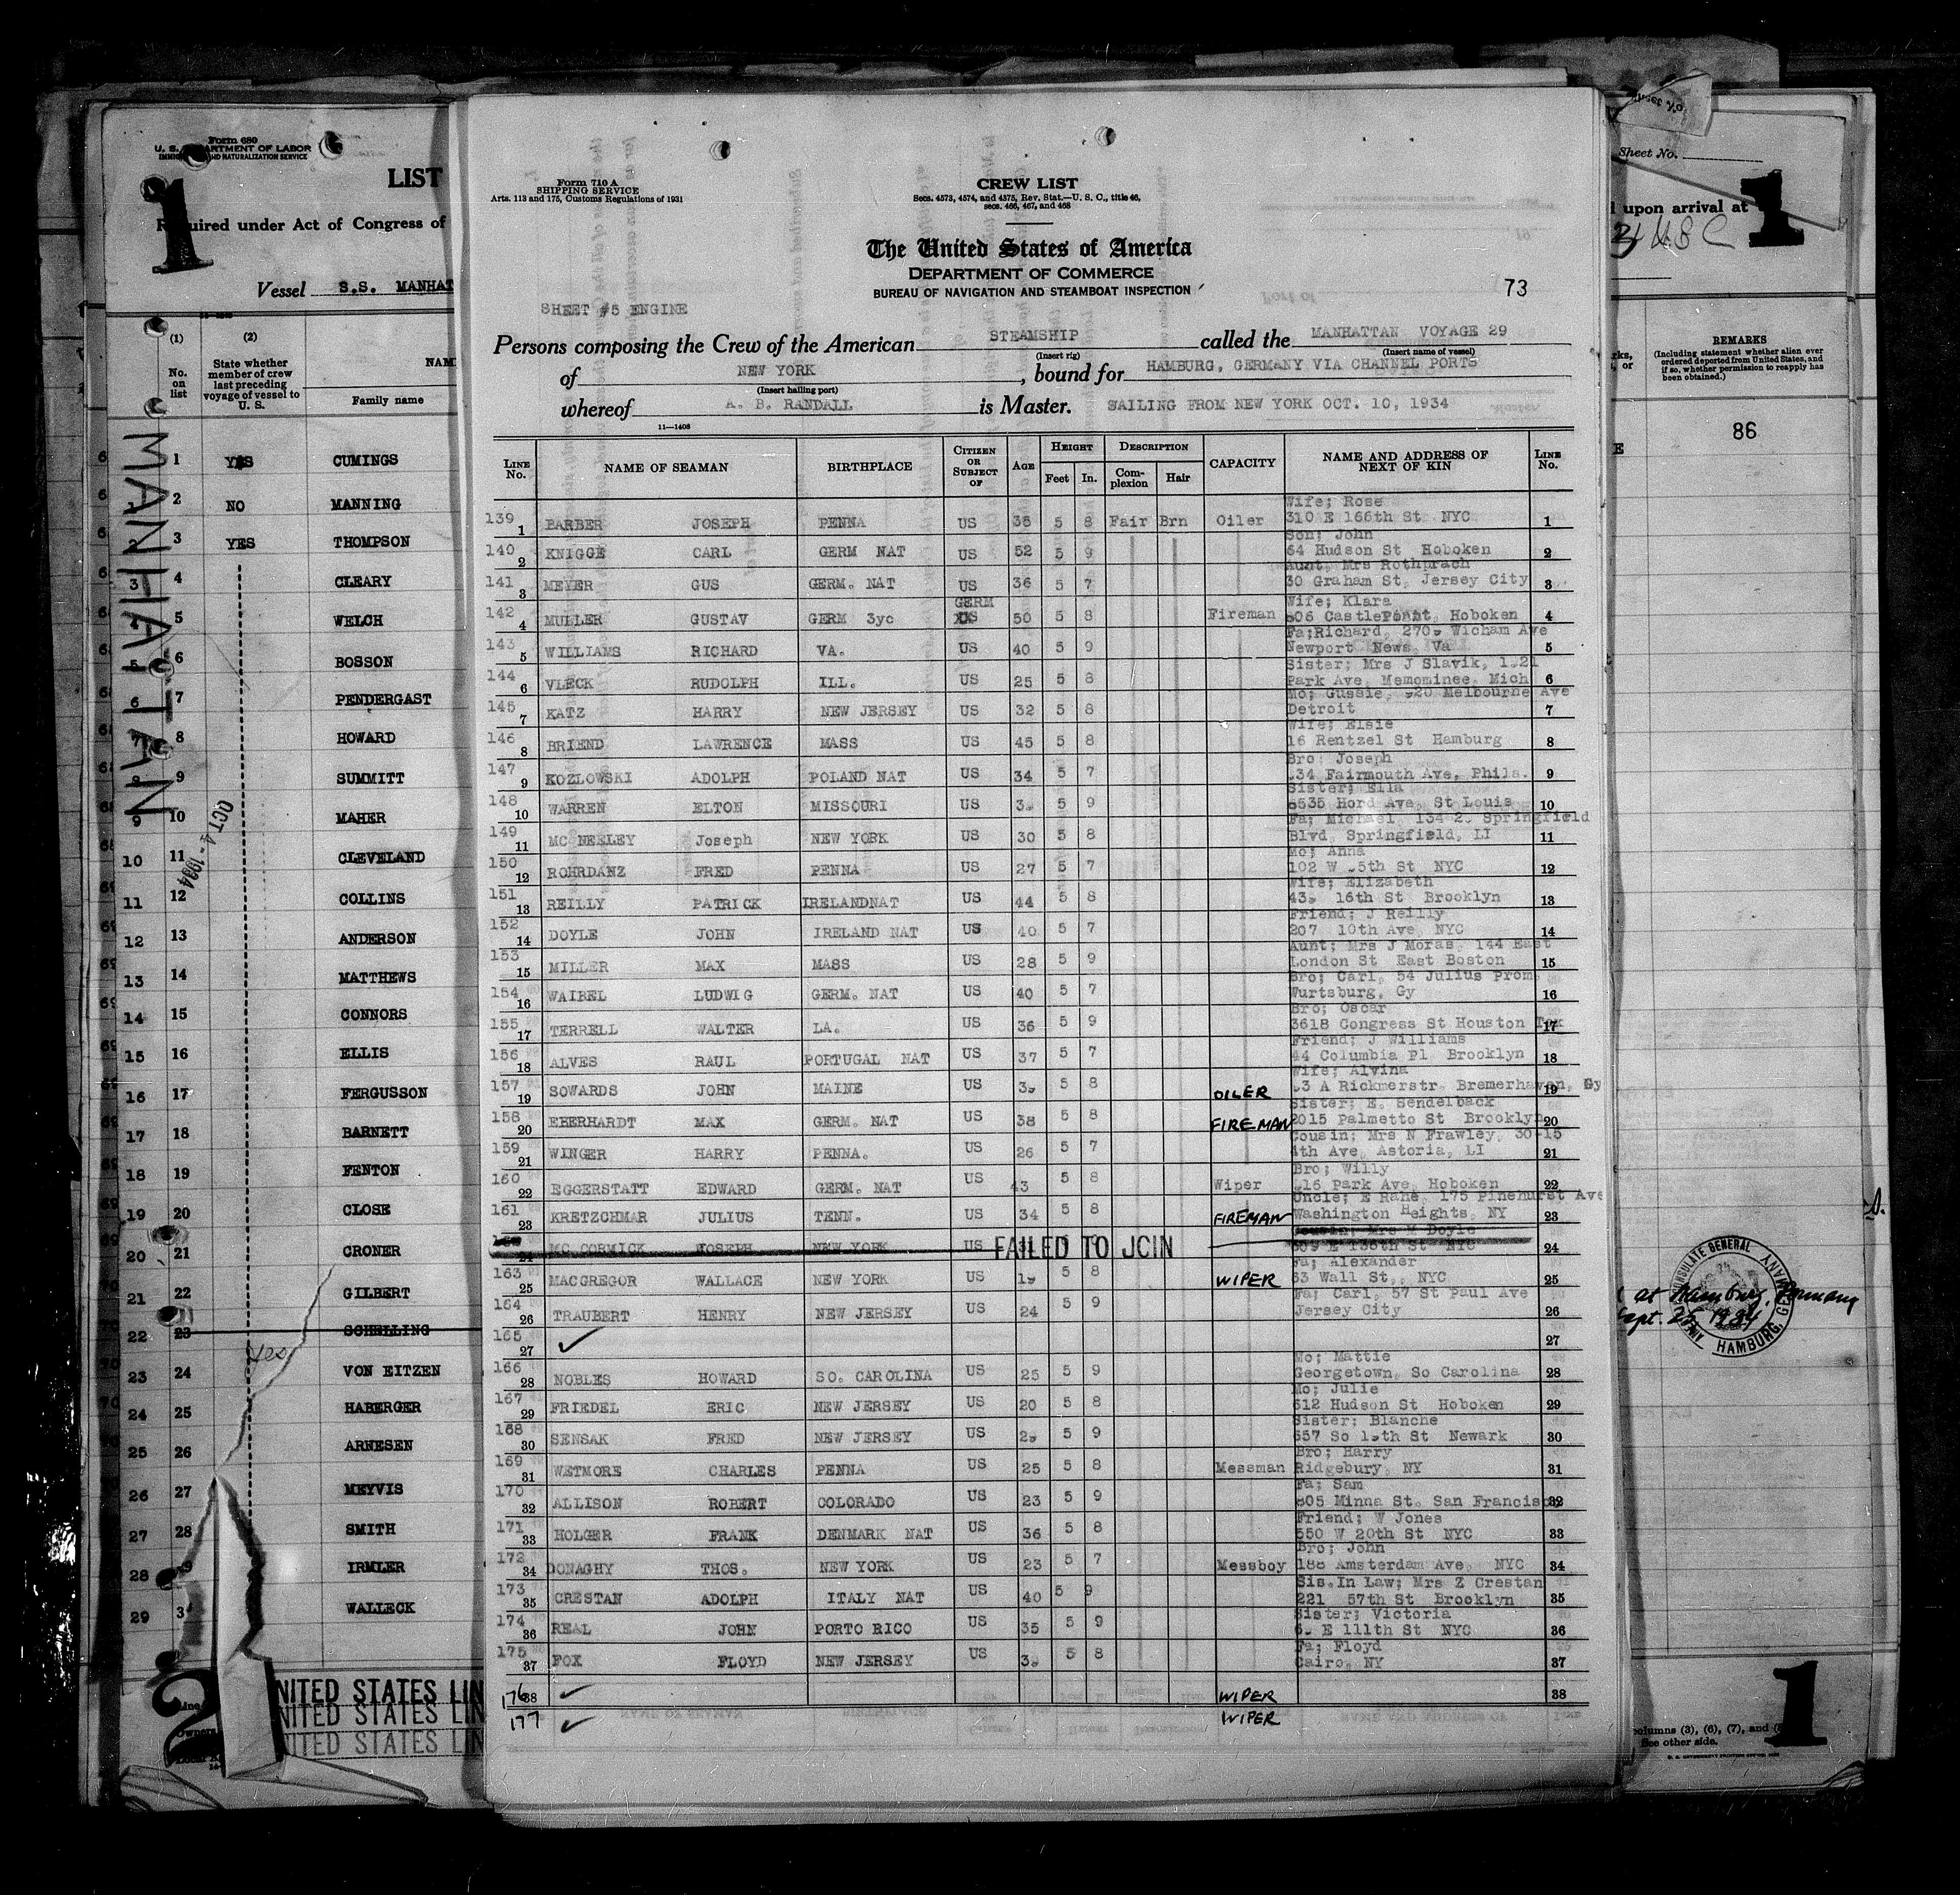 Form 680
U. S. DEPARTMENT OF LABOR
IMMIGRATION AND NATURALIZATION SERVICE
1
LIST
Required under Act of Congress of
Vessel S.S. MANHAT
(1) (2)
No. on list
State whether member of crew last preceding voyage of vessel to U. S.
NAM
Family name
MANHATTAN
OCT 4 - 1934
1 YES CUMINGS
2 NO MANNING
3 YES THOMPSON
4 CLEARY
5 WELCH
6 BOSSON
7 PENDERGAST
8 HOWARD
9 SUMMITT
10 MAHER
11 CLEVELAND
12 COLLINS
13 ANDERSON
14 MATTHEWS
15 CONNORS
16 ELLIS
17 FERGUSSON
18 BARNETT
19 FENTON
20 CLOSE
21 CRONER
22 GILBERT
23 SCHELLING
yes
24 VON EITZEN
25 HABERGER
26 ARNESEN
27 MEYVIS
28 SMITH
IRMLER
WALLECK
2
NITED STATES LIN
NITED STATES LIN
NITED STATES LIN
Form 710 A
SHIPPING SERVICE
Arts. 113 and 175, Customs Regulations of 1931
CREW LIST
Secs. 4573, 4574, and 4575, Rev. Stat.—U. S. C., title 46,
secs. 466, 467, and 468
The United States of America
DEPARTMENT OF COMMERCE
BUREAU OF NAVIGATION AND STEAMBOAT INSPECTION
73
SHEET #5 ENGINE
Persons composing the Crew of the American STEAMSHIP called the MANHATTAN VOYAGE 29
(Insert rig) (Insert name of vessel)
of NEW YORK, bound for HAMBURG, GERMANY VIA CHANNEL PORTS
(Insert hailing port)
whereof A. B. RANDALL is Master. SAILING FROM NEW YORK OCT. 10, 1934
11—1408
LINE No. NAME OF SEAMAN BIRTHPLACE CITIZEN OR SUBJECT OF AGE HEIGHT Feet In. DESCRIPTION Complexion Hair CAPACITY NAME AND ADDRESS OF NEXT OF KIN LINE No.
Wife; Rose
139 1 BARBER JOSEPH PENNA US 35 5 8 Fair Brn Oiler 310 E 166th St NYC 1
Son; John
140 2 KNIGGE CARL GERM NAT US 52 5 9 64 Hudson St Hoboken 2
Aunt, Mrs Rothprach
141 3 MEYER GUS GERM. NAT US 36 5 7 30 Graham St, Jersey City 3
GERM Wife; Klara
142 4 MULLER GUSTAV GERM 3yc 50 5 8 Fireman 606 Castle Point, Hoboken 4
Fa; Richard, 270 Wicham Ave
143 5 WILLIAMS RICHARD VA. US 40 5 9 Newport News, Va 5
Sister; Mrs J Slavik,
144 6 VLECK RUDOLPH ILL. US 25 5 8 Park Ave, Memominee, Mich 6
Mo; Gussie, Melbourne Ave
145 7 KATZ HARRY NEW JERSEY US 32 5 8 Detroit 7
Wife; Elsie
146 8 BRIEND LAWRENCE MASS US 45 5 8 16 Rentzel St Hamburg 8
Bro: Joseph
147 9 KOZLOWSKI ADOLPH POLAND NAT US 34 5 7 Fairmouth Ave, Phila. 9
Sister; Ella
148 10 WARREN ELTON MISSOURI US 5 9 6535 Hord Ave, St Louis 10
Fa; Michael, Springfield
149 11 MC NEELEY Joseph NEW YORK US 30 5 8 Blvd, Springfield, LI 11
Mo; Anna
150 12 ROHRDANZ FRED PENNA US 27 5 7 102 W 5th St NYC 12
Wife; Elizabeth
151 13 REILLY PATRICK IRELANDNAT US 44 5 8 16th St Brooklyn 13
Friend; J Reilly
152 14 DOYLE JOHN IRELAND NAT US 40 5 7 207 10th Ave, NYC 14
Aunt; Mrs J Moras, 144 East
153 15 MILLER MAX MASS US 28 5 9 London St East Boston 15
Bro; Carl, 54 Julius Prom
154 16 WAIBEL LUDWIG GERM. NAT US 40 5 7 Wurtsburg, Gy 16
Bro; Oscar
155 17 TERRELL WALTER LA. US 36 5 9 3618 Congress St Houston Tex 17
Friend; J Williams
156 18 ALVES RAUL PORTUGAL NAT US 37 5 7 44 Columbia Pl Brooklyn 18
Wife; Alvina
157 19 SOWARDS JOHN MAINE US 5 8 OILER A Rickmerstr. Bremerhaven, Gy 19
Sister; E. Sendelback
158 20 EBERHARDT MAX GERM. NAT US 38 5 8 FIREMAN 2015 Palmetto St Brooklyn 20
Cousin; Mrs N Frawley, 30-15
159 21 WINGER HARRY PENNA. US 26 5 7 4th Ave, Astoria, LI 21
Bro; Willy
160 22 EGGERSTATT EDWARD GERM. NAT US 43 5 8 Wiper Park Ave, Hoboken 22
Uncle; E Rahe, 175 Pinehurst Ave
161 23 KRETZCHMAR JULIUS TENN. US 34 5 8 FIREMAN Washington Heights, NY 23
Cousin; Mrs M Doyle
24 MC CORMICK JOSEPH NEW YORK US FAILED TO JOIN 509 E 136th St NYC 24
Fa; Alexander
163 25 MACGREGOR WALLACE NEW YORK US 5 8 WIPER 63 Wall St., NYC 25
Fa; Carl, 57 St Paul Ave
164 26 TRAUBERT HENRY NEW JERSEY US 24 5 9 Jersey City 26
165 27 ✓ 27
Mo; Mattie
166 28 NOBLES HOWARD SO. CAROLINA US 25 5 9 Georgetown, So Carolina 28
Mo; Julie
167 29 FRIEDEL ERIC NEW JERSEY US 20 5 8 612 Hudson St Hoboken 29
Sister; Blanche
168 30 SENSAK FRED NEW JERSEY US 5 9 557 So St Newark 30
Bro; Harry
169 31 WETMORE CHARLES PENNA US 25 5 8 Messman Ridgebury, NY 31
Fa; Sam
170 32 ALLISON ROBERT COLORADO US 23 5 9 805 Minna St. San Francisco 32
Friend; W Jones
171 33 HOLGER FRANK DENMARK NAT US 36 5 8 550 W 20th St NYC 33
Bro; John
172 34 DONAGHY THOS. NEW YORK US 23 5 7 Messboy 188 Amsterdam Ave, NYC 34
Sis. In Law; Mrs Z Crestan
173 35 CRESTAN ADOLPH ITALY NAT US 40 5 9 221 57th St Brooklyn 35
Sister; Victoria
174 36 REAL JOHN PORTO RICO US 35 5 9 E 111th St NYC 36
Fa; Floyd
175 37 FOX FLOYD NEW JERSEY US 5 8 Cairo, NY 37
176 38 ✓ WIPER 38
177 ✓ WIPER
Sheet No.
upon arrival at
1
REMARKS
(Including statement whether alien ever ordered deported from United States, and if so, whether permission to reapply has been obtained.)
86
at Hamburg, Germany
1934
HAMBURG, GERMANY
columns (3), (6), (7), and (
See other side.
1